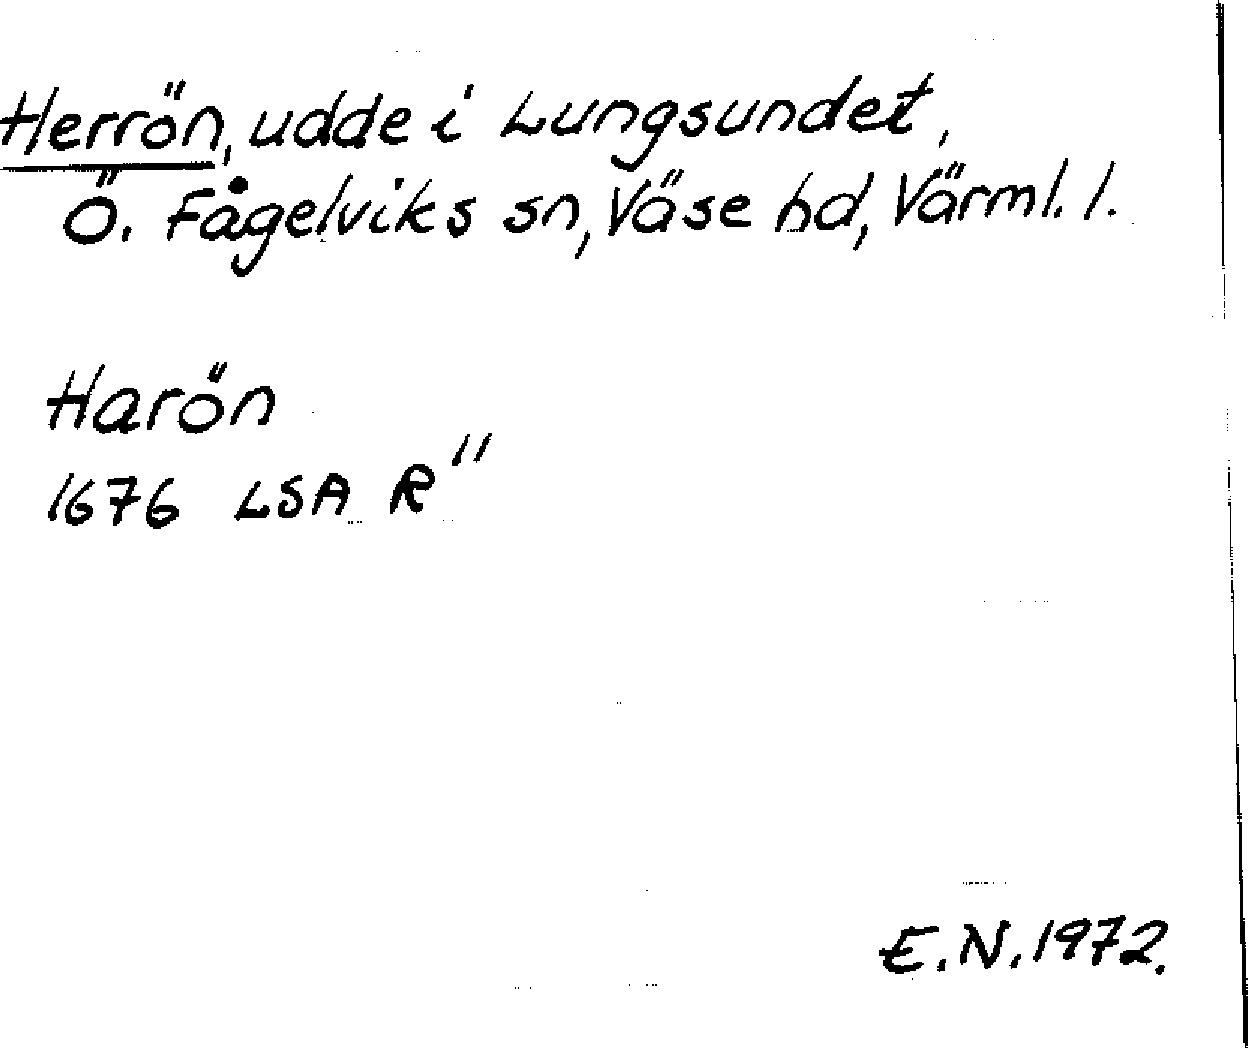 Herrön, udde i Lungsundet,
Ö. Fågelviks sn, Väse hd, Värml. l.
Harön
1676 LSA R"
E.N. 1972.